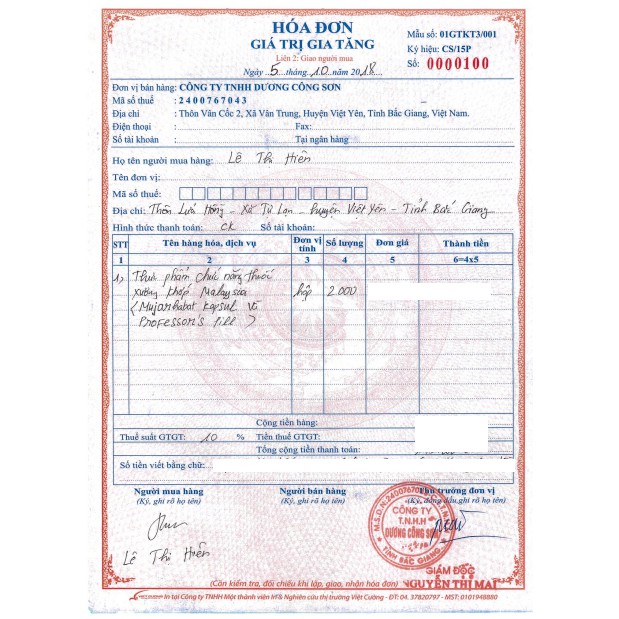 HÓA ĐƠN
GIÁ TRỊ GIA TĂNG
Liên 2: Giao người mua
Ngày 5 tháng 10 năm 2018
Mẫu số: 01GTKT3/001
Ký hiệu: CS/15P
Số: 0000100
Đơn vị bán hàng: CÔNG TY TNHH DƯƠNG CÔNG SƠN
Mã số thuế : 2400767043
Địa chỉ : Thôn Vân Cốc 2, Xã Vân Trung, Huyện Việt Yên, Tỉnh Bắc Giang, Việt Nam.
Điện thoại : Fax:
Số tài khoản : Tại ngân hàng
Họ tên người mua hàng: Lê Thị Hiền
Tên đơn vị:
Mã số thuế:
Địa chỉ: Thôn Lưu Hồng - Xã Tự Lạn - huyện Việt Yên - Tỉnh Bắc Giang
Hình thức thanh toán: CK Số tài khoản:
STT Tên hàng hóa, dịch vụ Đơn vị tính Số lượng Đơn giá Thành tiền
1 2 3 4 5 6=4x5
1, Thực phẩm chức năng thuốc
xương khớp Malaysia hộp 2.000
(Mujarhabat Kapsul Và
Professor's Pill)
Cộng tiền hàng:
Thuế suất GTGT: 10 % Tiền thuế GTGT:
Tổng cộng tiền thanh toán:
Số tiền viết bằng chữ:
Người mua hàng Người bán hàng Thủ trưởng đơn vị
(Ký, ghi rõ họ tên) (Ký, ghi rõ họ tên) (Ký, đóng dấu, ghi rõ họ tên)
M.S.D.N: 2400767043
CÔNG TY
T.N.H.H
DƯƠNG CÔNG SƠN
TỈNH BẮC GIANG
Lê Thị Hiền
GIÁM ĐỐC
NGUYỄN THỊ MAI
(Cần kiểm tra, đối chiếu khi lập, giao, nhận hóa đơn)
In tại Công ty TNHH Một thành viên M&I Nghiên cứu thị trường Việt Cường - ĐT: 04. 37820797 - MST: 0101948880